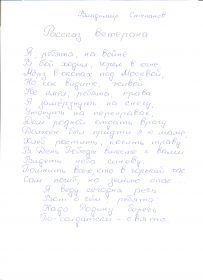 Владимир Степанов
Рассказ ветерана
Я, ребята, на войне
В бой ходил, горел в огне.
Мёрз в окопах под Москвой,
Но, как видите, живой.
Не имел, ребята, права
Я замёрзнуть на снегу,
Утонуть на переправах,
Дом родной отдать врагу.
Должен был прийти я к маме,
Хлеб растить, косить траву.
В День Победы вместе с вами
Видеть неба синеву.
Помнить всех, кто в горький час
Сам погиб, но землю спас...
Я веду сегодня речь
Вот о чём, ребята:
Надо Родину беречь
По-солдатски свято.